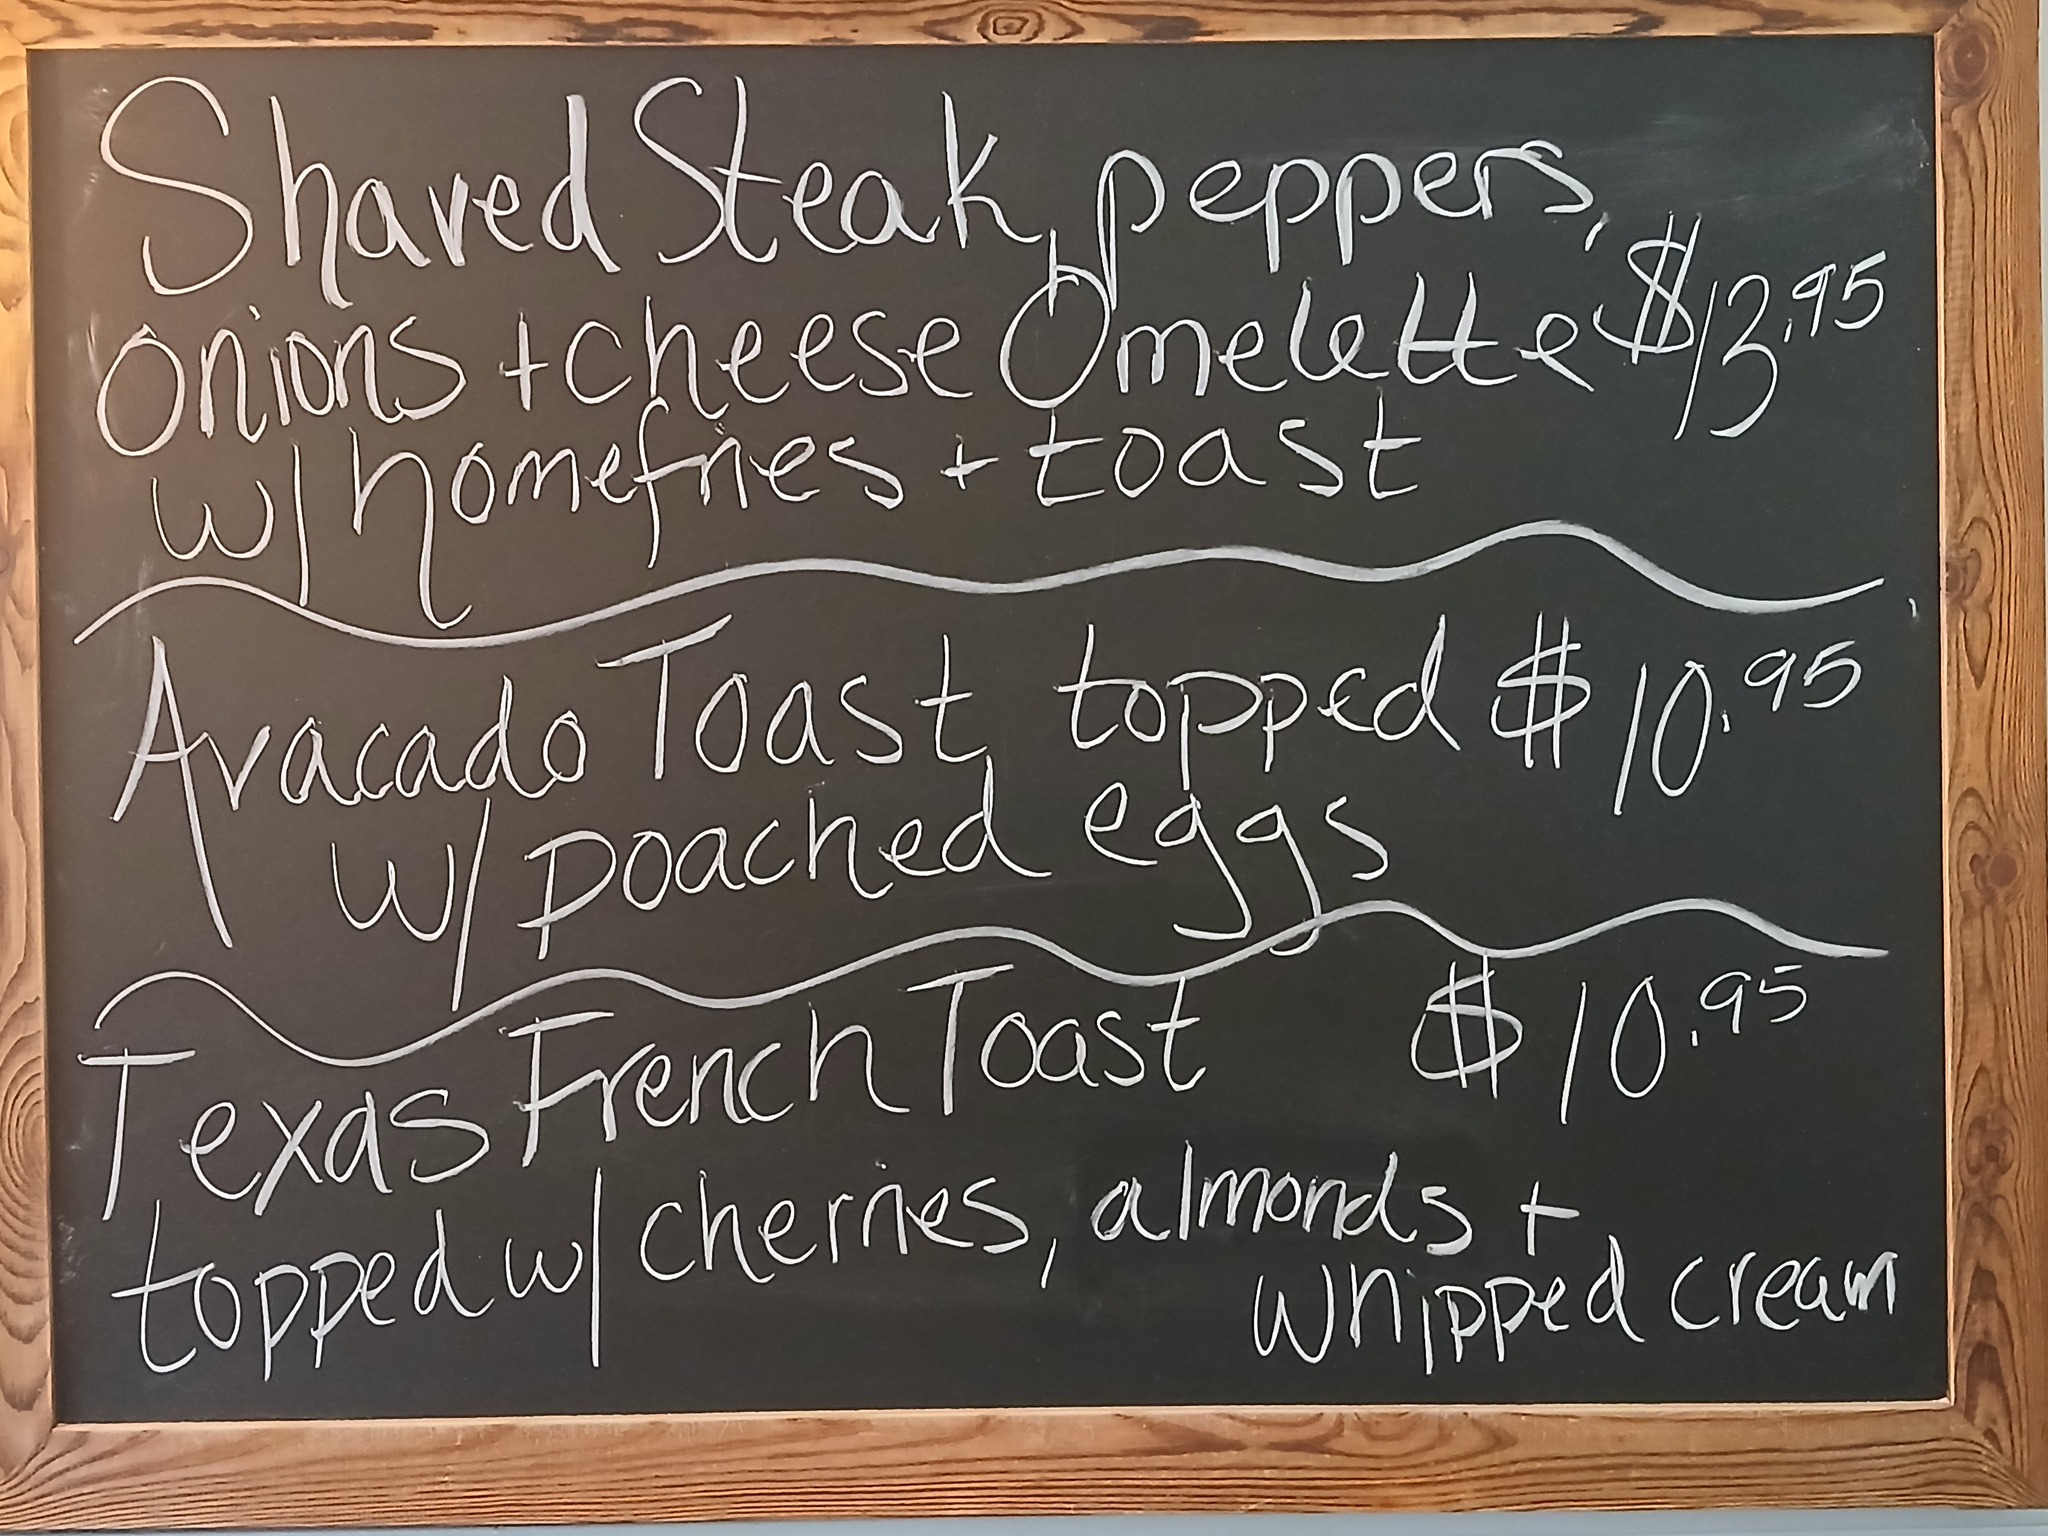 Shaved Steak, peppers,
onions + cheese Omelette $13.95
w/ homefries + toast
Avacado Toast topped $10.95
w/ poached eggs
Texas French Toast $10.95
topped w/ cherries, almonds +
whipped cream